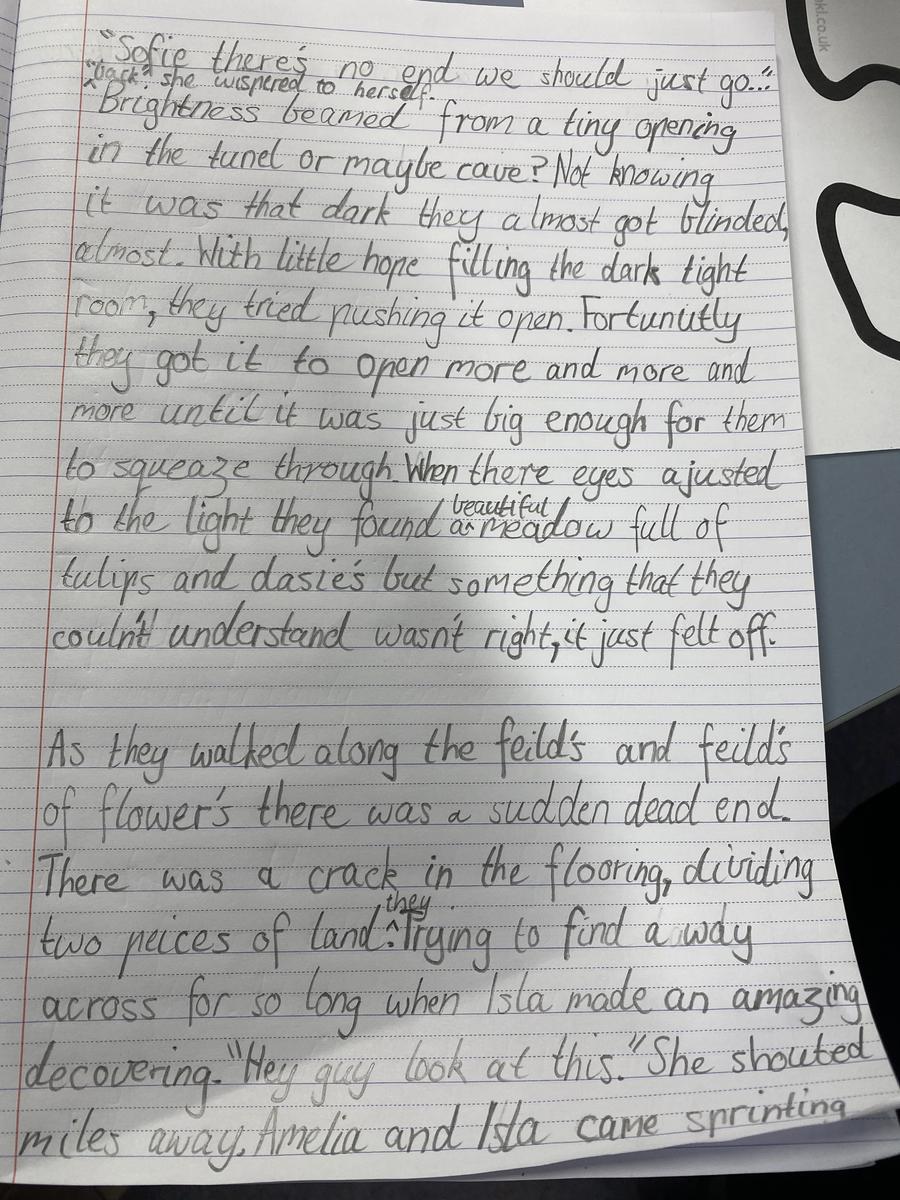 "Sofie there's no end we should just go..."
^"back" she wispered to herself.
Brightness beamed from a tiny opening
in the tunel or maybe cave? Not knowing
it was that dark they almost got blinded,
almost. With little hope filling the dark tight
room, they tried pushing it open. Fortunutly
they got it to open more and more and
more until it was just big enough for them
to squeaze through. When there eyes ajusted
beautiful
to the light they found a^meadow full of
tulips and dasie's but something that they
couln't understand wasn't right, it just felt off.
As they walked along the feild's and feild's
of flower's there was a sudden dead end.
There was a crack in the flooring, dividing
they
two peices of land.^Trying to find a way
across for so long when Isla made an amazing
decovering. "Hey guy look at this." She shouted
miles away. Amelia and Isla came sprinting
kl.co.uk